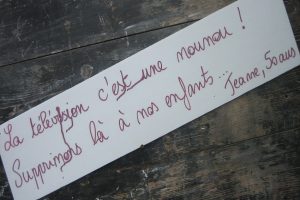 La télévision c'est une nounou !
Supprimons là à nos enfants... Jeanne, 50 ans